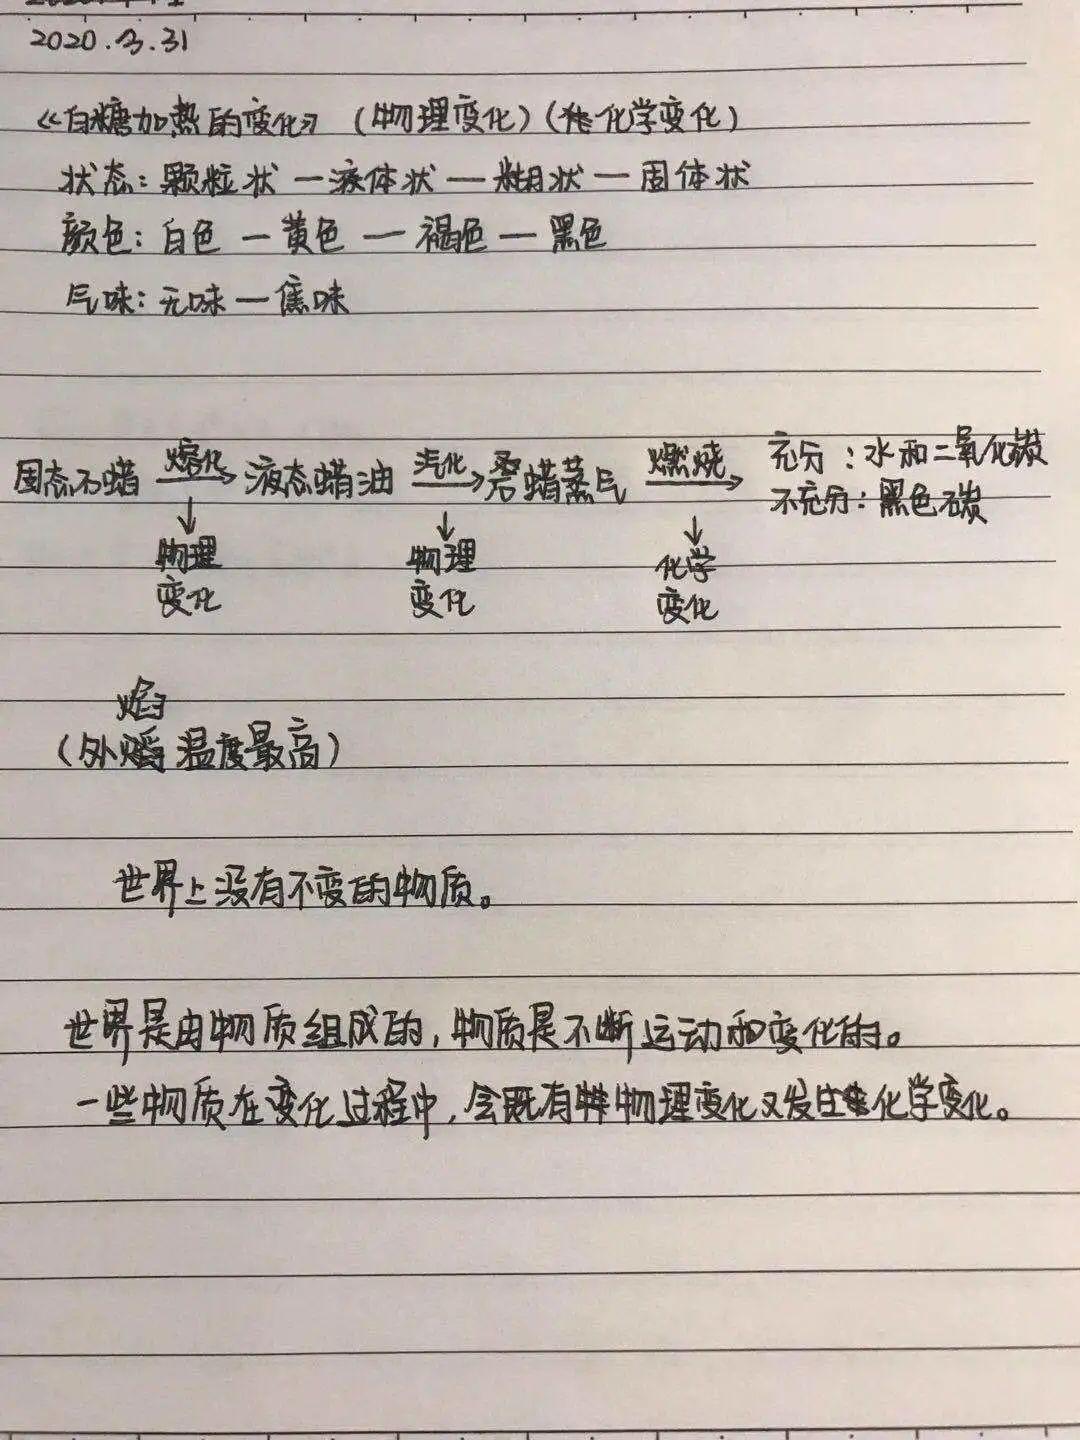 2020.3.31
《白糖加热的变化》（物理变化）（化学变化）
状态：颗粒状—液体状—糊状—固体状
颜色：白色—黄色—褐色—黑色
气味：无味—焦味
固态石蜡 熔化→ 液态蜡油 汽化→ 蜡蒸气 燃烧→ 充分：水和二氧化碳
不充分：黑色碳
↓ ↓ ↓
物理 物理 化学
变化 变化 变化
焰
（外 温度最高）
世界上没有不变的物质。
世界是由物质组成的，物质是不断运动和变化的。
一些物质在变化过程中，会既有物理变化又发生化学变化。